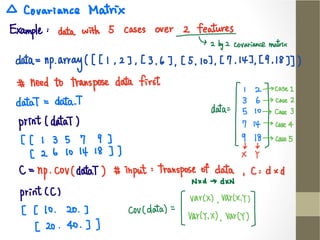 △ Covariance Matrix
Example: data with 5 cases over 2 features
→ 2 by 2 covariance matrix
data = np.array([[1,2],[3,6],[5,10],[7,14],[9,18]])
# need to transpose data first
dataT = data.T
print(dataT)
[[1 3 5 7 9]
[2 6 10 14 18]]
data =
1 2 → case 1
3 6 → case 2
5 10 → case 3
7 14 → case 4
9 18 → case 5
X Y
C = np.cov(dataT) # input: transpose of data, C: d×d
N×d → d×N
print(C)
[[10. 20.]
[20. 40.]]
Cov(data) =
Var(X), Var(X,Y)
Var(Y,X), Var(Y)